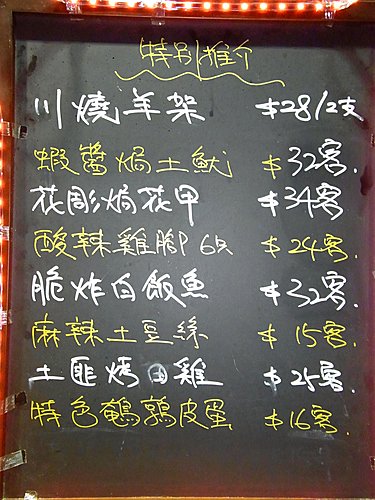 特别推介
川燒羊架 $28/2支
蝦醬焗土魷 $32客.
花彫焗花甲 $34客
酸辣雞腳 6只 $24客.
脆炸白飯魚 $32客.
麻辣土豆絲 $15客.
土匪烤田雞 $25客.
特色鵪鶉皮蛋 $16客.